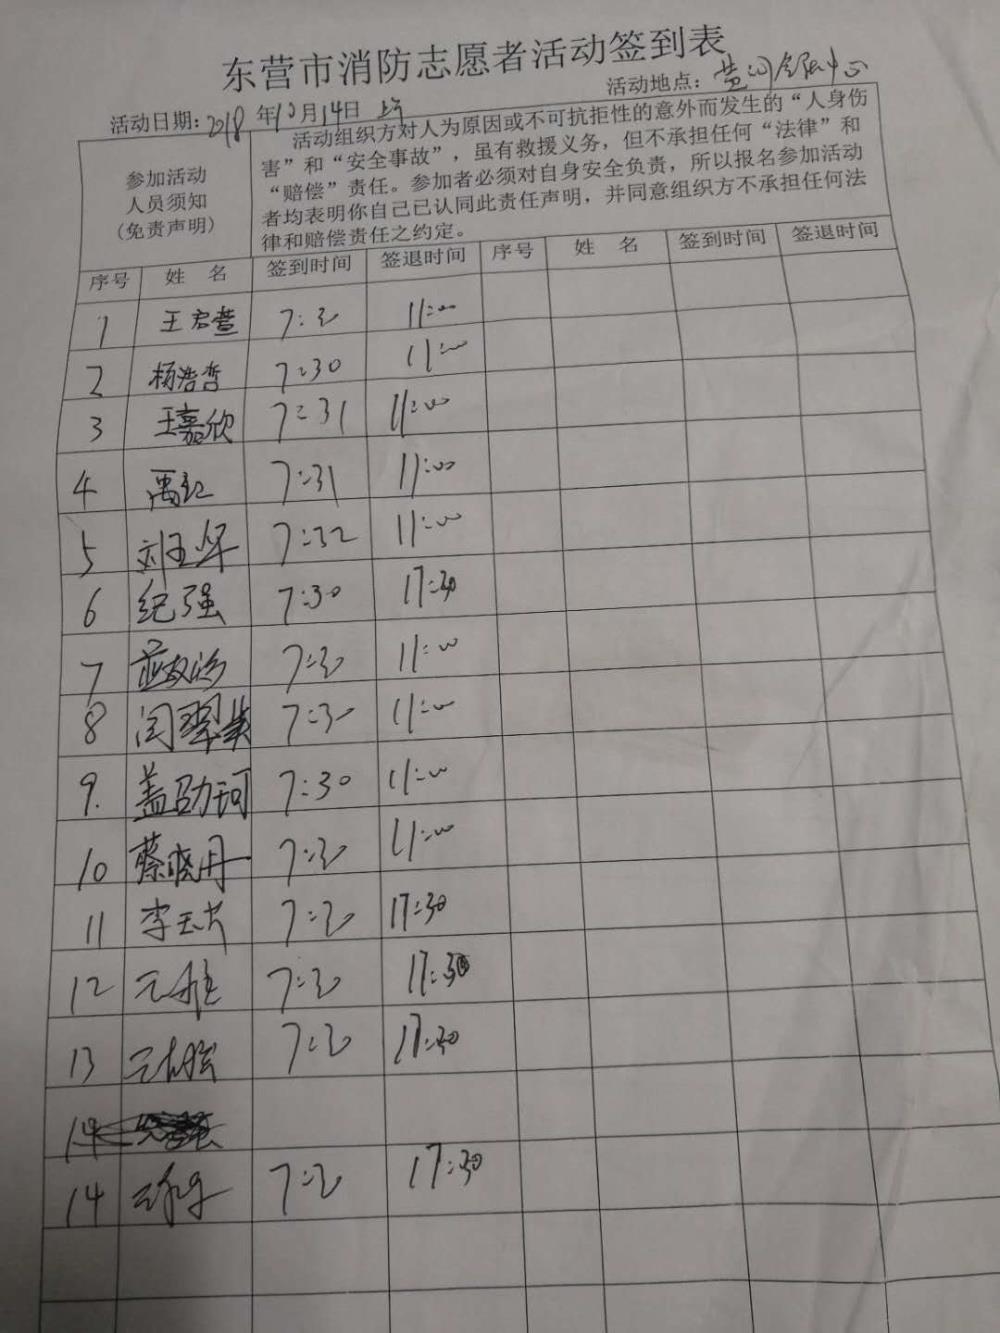 东营市消防志愿者活动签到表
活动日期：2018年10月14日 活动地点：
参加活动
人员须知
(免责声明)
活动组织方对人为原因或不可抗拒性的意外而发生的“人身伤
害”和“安全事故”，虽有救援义务，但不承担任何“法律”和
“赔偿”责任。参加者必须对自身安全负责，所以报名参加活动
者均表明你自己已认同此责任声明，并同意组织方不承担任何法
律和赔偿责任之约定。
序号 姓 名 签到时间 签退时间 序号 姓 名 签到时间 签退时间
1 王君萱 7:30 11:00
2 杨浩哲 7:30 11:00
3 王嘉欣 7:31 11:00
4 7:31 11:00
5 刘玉华 7:32 11:00
6 纪强 7:30 17:30
7 7:30 11:00
8 闫翠 7:30 11:00
9. 盖劭珂 7:30 11:00
10 蔡晓丹 7:30 11:00
11 李玉 7:30 17:30
12 7:30 17:30
13 7:30 17:30
14
14 7:30 17:30